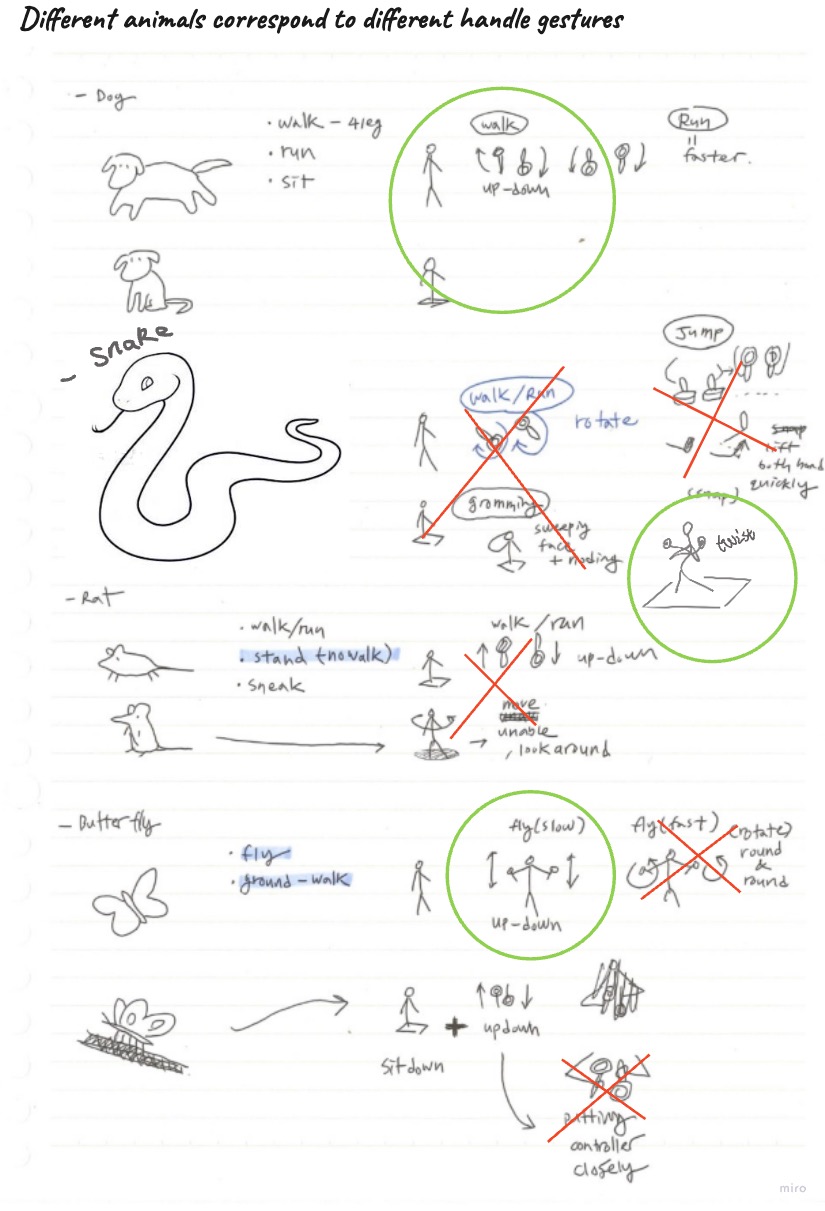 Different animals correspond to different handle gestures
- Dog
· walk - 4leg
· run
· sit
walk
up-down
Run
=
faster.
- Snake
Jump
both hand
quickly
(snap)
walk/Run
rotate
gromming
sweepiy
face
+ noding
twist
- Rat
· walk/run
· stand (no walk)
· sneak
walk/run
up-down
move
unable
, look around
- Butterfly
· fly
· ground - walk
fly(slow)
up-down
fly(fast)
(rotate)
round
&
round
sitdown
+
updown
putting
controller
closely
miro